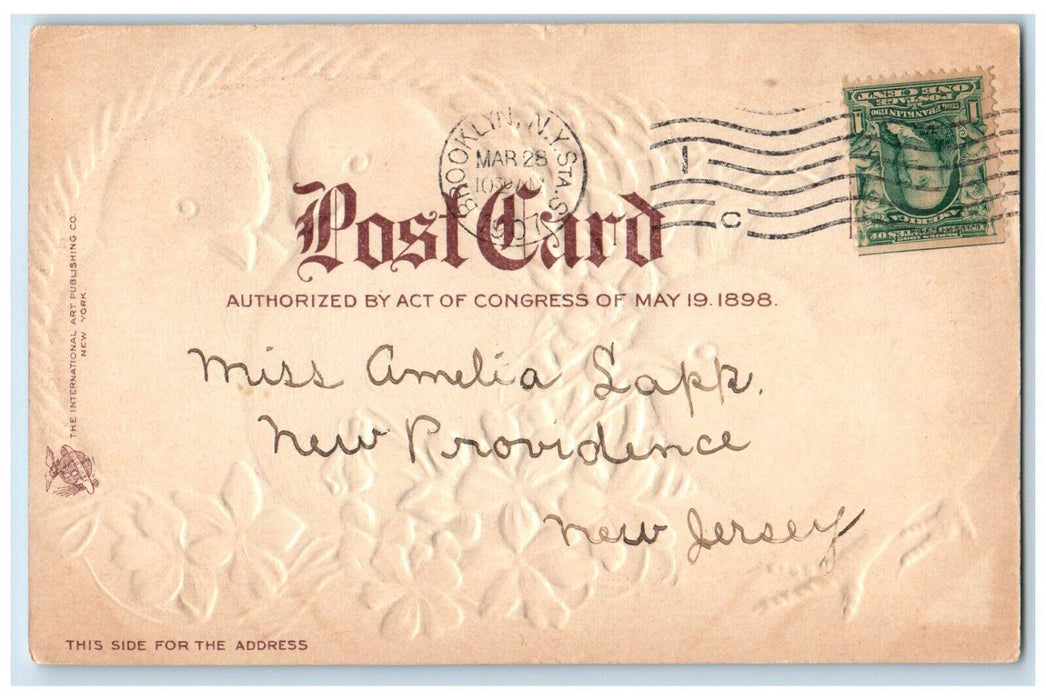 BROOKLYN, N.Y. STA. S
MAR 28
1030 AM
1907
1
C
1706 FRANKLIN 1790
POSTAGE
ONE CENT
1 1
AMERICA
Post Card
AUTHORIZED BY ACT OF CONGRESS OF MAY 19. 1898.
THE INTERNATIONAL ART PUBLISHING CO.
NEW YORK.
Miss Amelia Sapp.
New Providence
New Jersey
THIS SIDE FOR THE ADDRESS